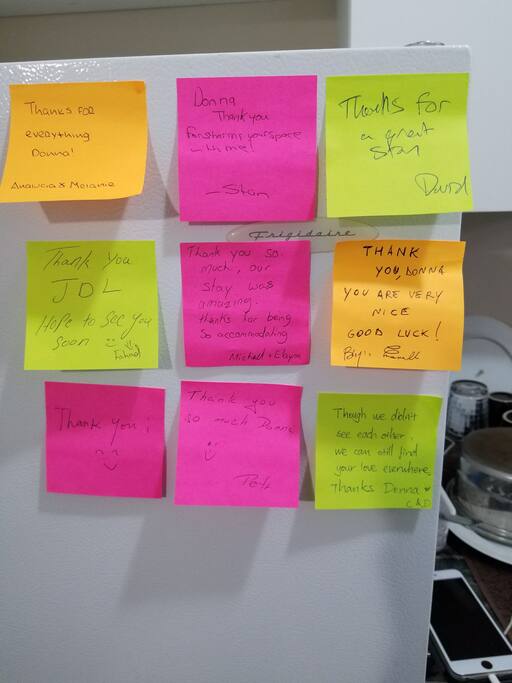 Thanks for
everything
Donna!
& Melanie
Donna
Thank you
for sharing your space
with me!
- Stan
Thanks for
a great
stay
David
Frigidaire
Thank You
JDL
Hope to see you
soon
Fahad
Thank you so
much, our
stay was
amazing.
thanks for being
so accommodating
THANK
YOU, DONNA
YOU ARE VERY
NICE
GOOD LUCK!
Thank you!
Thank you
so much Donna
Though we didn't
see each other.
we can still find
your love everwhere
Thanks Donna ♥
C & D